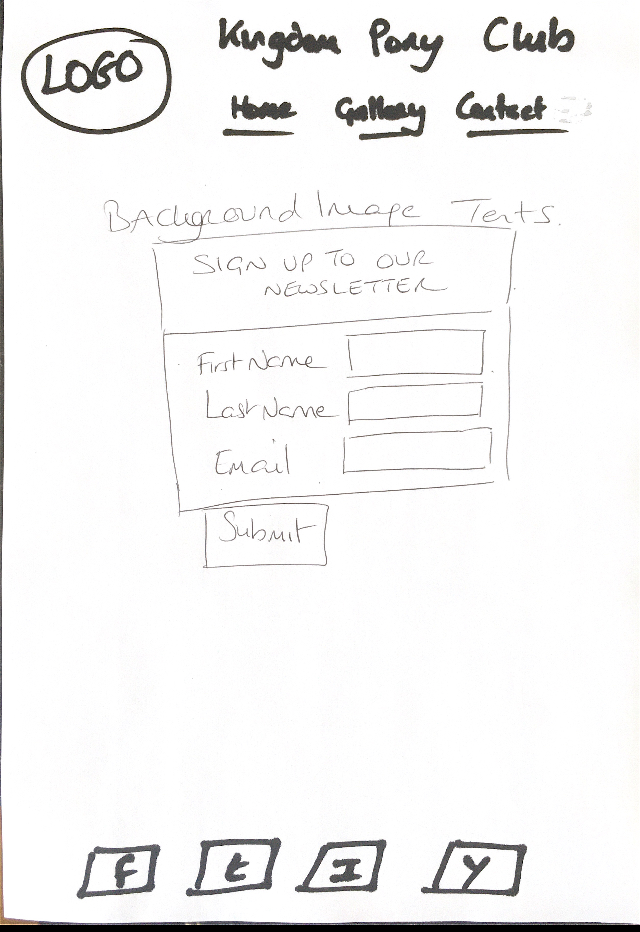 LOGO
Kingdom Pony Club
Home Gallery Contact
BAckground Image Tents.
SIGN UP TO OUR
NEWSLETTER
First Name
Last Name
Email
Submit
f t I Y